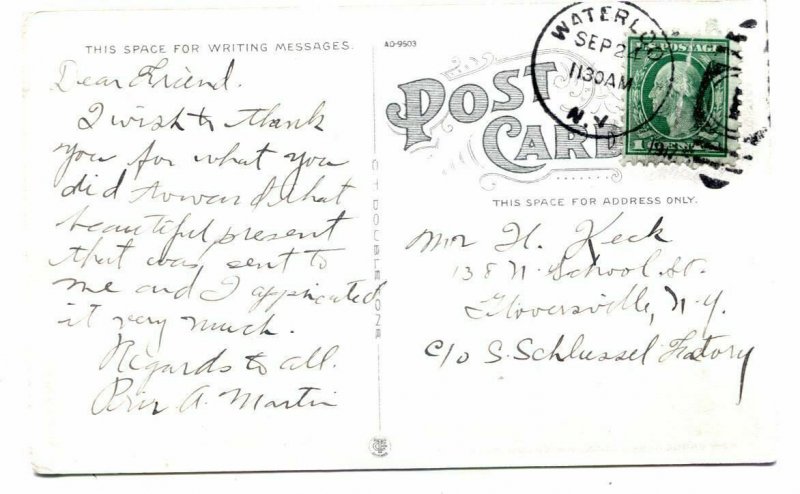 THIS SPACE FOR WRITING MESSAGES.
Dear Friend.
I wish to thank
you for what you
did toward that
beautiful present
that was sent to
me and I appricated
it very much.
Regards to all.
A. Martin
AO-9503
C T DOUBLETONE
POST CARD
WATERLOO
SEP 2
1130AM
N.Y.
U.S. POSTAGE
1 CENT
THIS SPACE FOR ADDRESS ONLY.
Mr H. Keck
138 N. School St.
Gloversville, N.Y.
c/o S. Schlussel Fatory